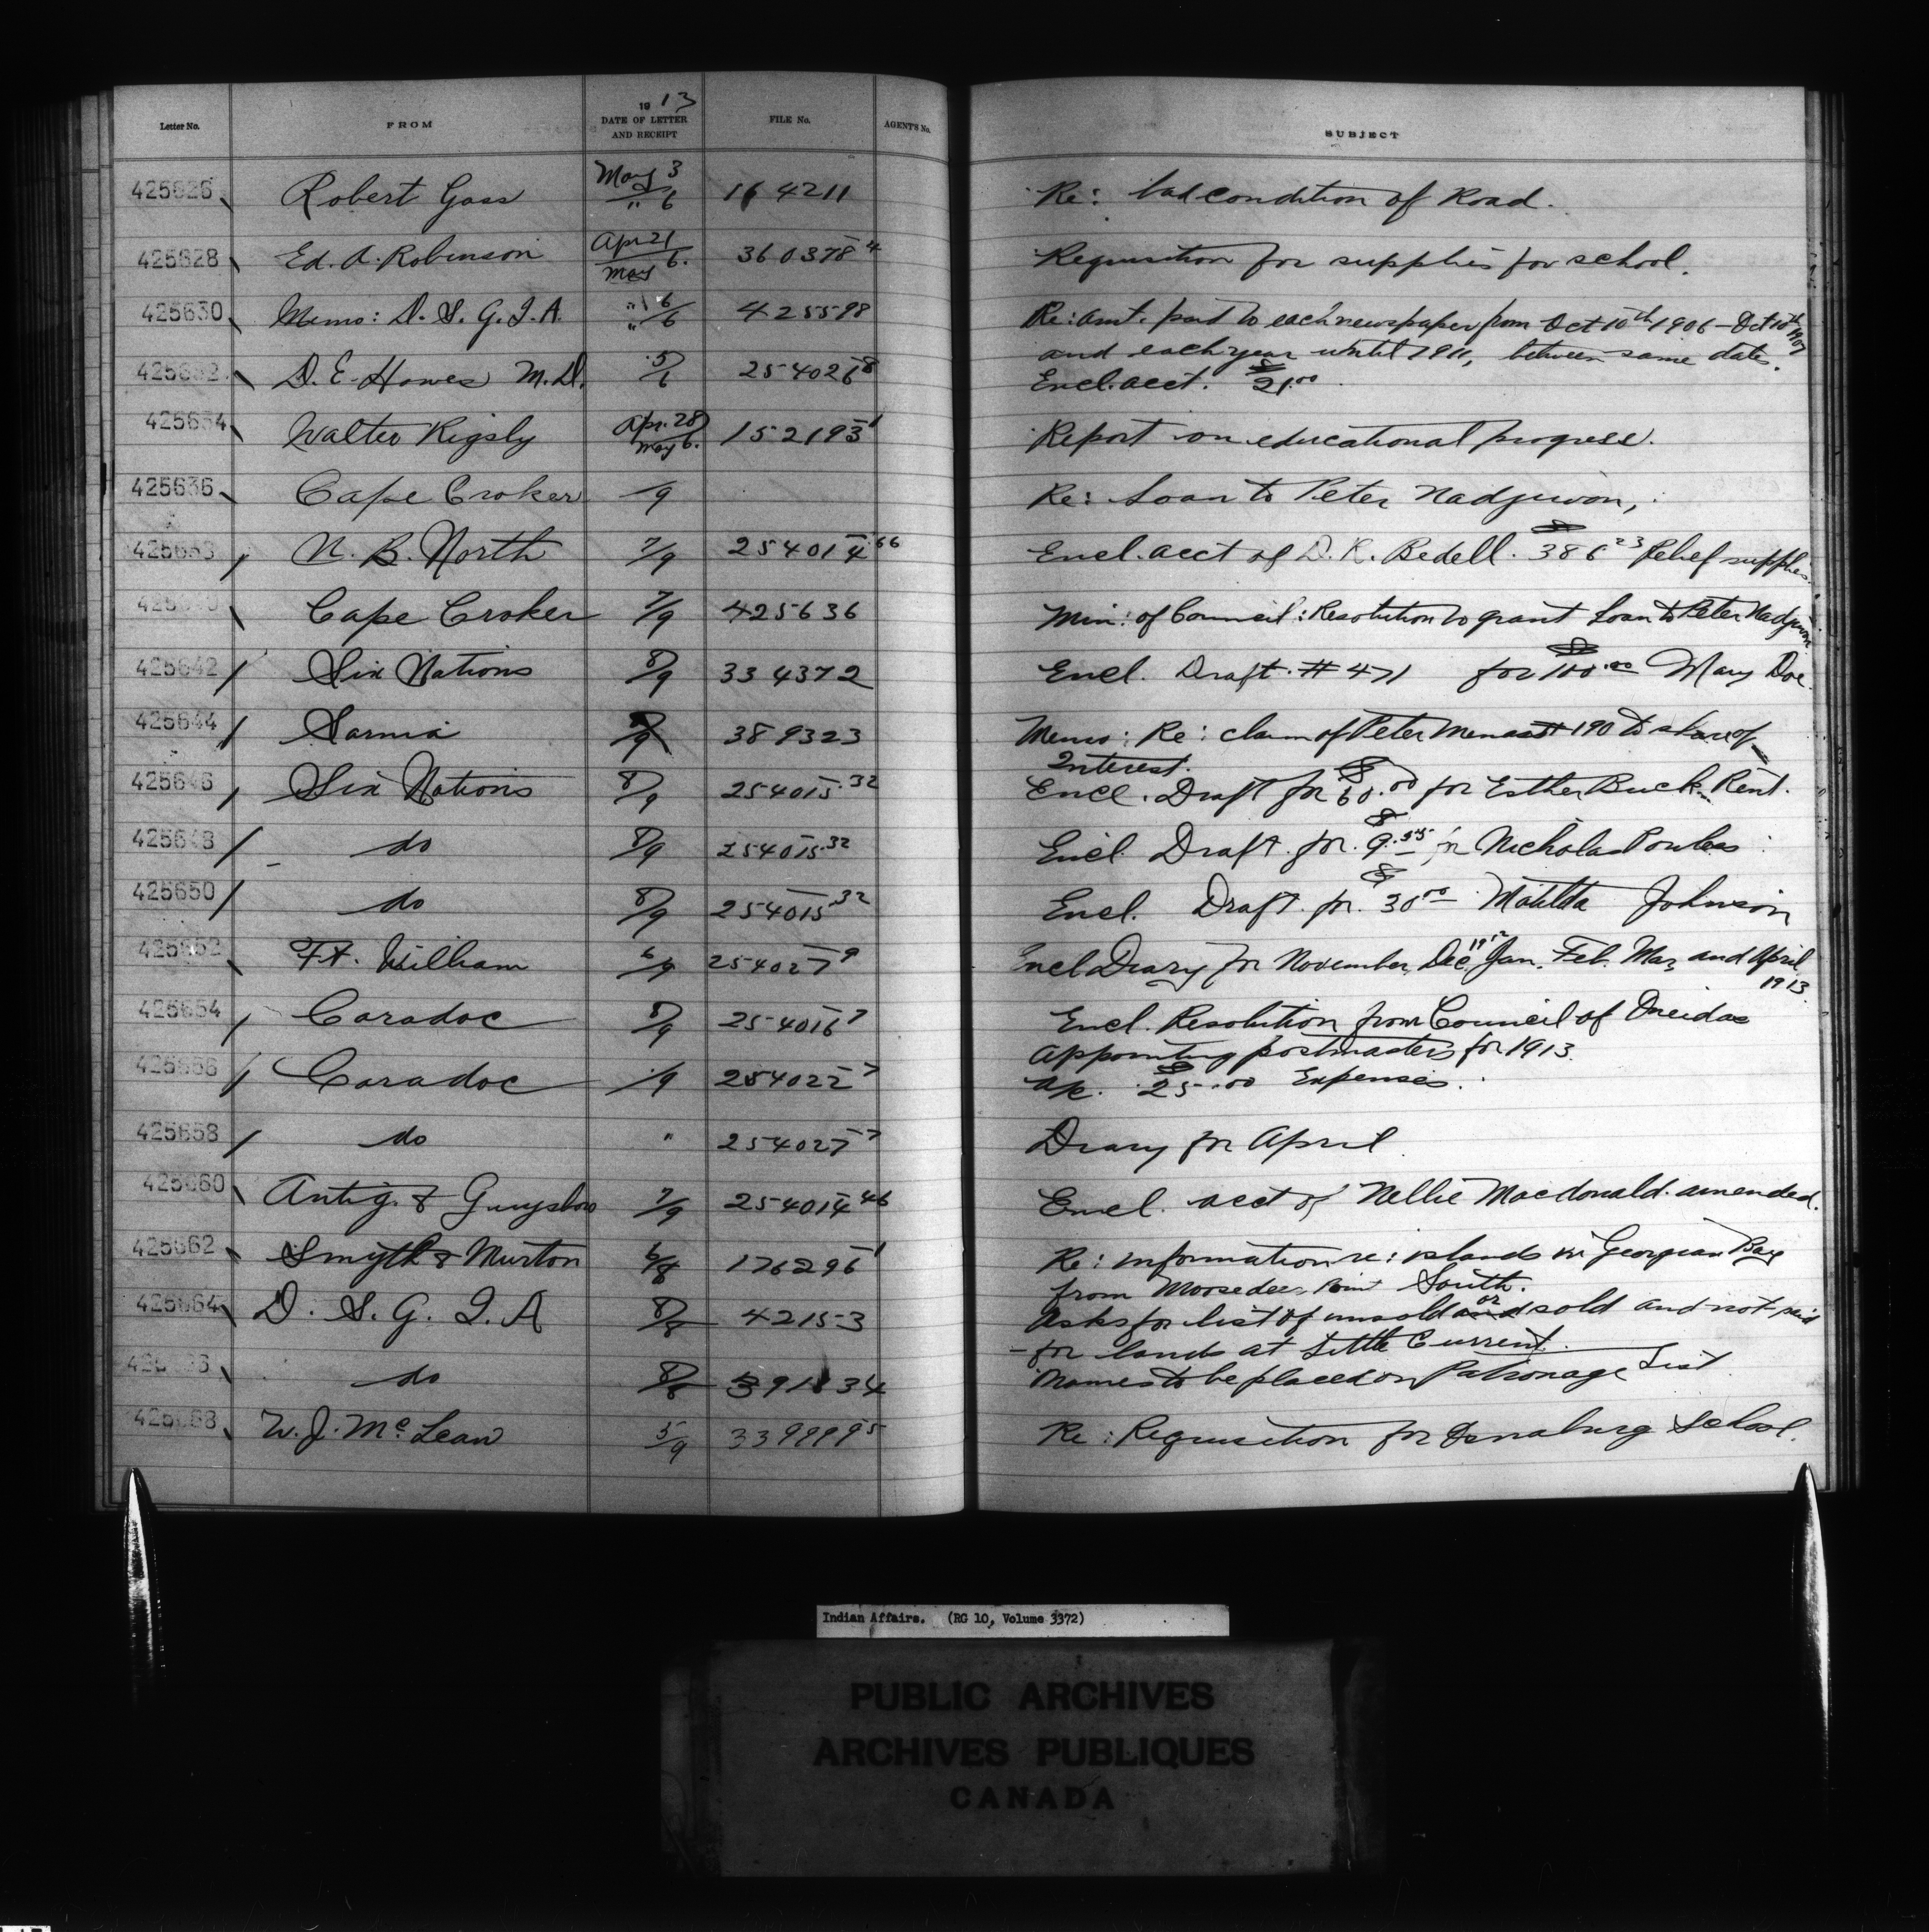 1913
Letter No. FROM DATE OF LETTER AND RECEIPT FILE No. AGENT'S No. SUBJECT
425626 Robert Goss May 3/" 6 164211 Re: bad condition of Road.
425628 Ed. A. Robinson Apr 21/May 6. 360378-4 Requisition for supplies for school.
425630 Memo: D. S. G. I. A. " 6/" 6 425598 Re: amt. paid to each newspaper from Oct 10th 1906 - Oct 10th 1907
and each year until 1911, between same dates.
425632 D. E. Howes M.D. 5/6 254026-8 Encl. acct. $21.00
425634 Walter Rigsby Apr. 28/May 6. 152193-1 Report on educational progress.
425636 Cape Croker /9 Re: Loan to Peter Nadjiwon,
N. B. North 7/9 254014-66 Encl. acct of D. R. Bedell. $386 23 Relief supplies.
Cape Croker 7/9 425636 Min: of Council: Resolution to grant Loan to Peter Nadjiwon
425642 Six Nations 8/9 334372 Encl. Draft. #471 for $100.00 Mary Doe.
425644 Sarnia /9 389323 Memo: Re: claim of Peter #190 to share of
Interest.
425646 Six Nations 8/9 254015-32 Encl. Draft for $60.00 for Esther Buck. Rent.
425648 do 8/9 254015-32 Encl. Draft. for $9.55 for Nicholas Powless
425650 do 8/9 254015-32 Encl. Draft. for. $30 00 Matilda Johnson
425652 Ft. William 6/9 254027-9 Encl Diary for November, Dec. 1912 Jan. Feb. Mar, and April
1913.
425654 Caradoc 8/9 254016-7 Encl. Resolution from Council of Oneidas
Appointing postmasters for 1913.
425656 Caradoc /9 254022-7 a/c. $25.00 Expenses.
425658 do " 254027-7 Diary for April
425660 Antig. & Guysboro 7/9 254014-46 Encl. acct of Nellie Macdonald. amended.
425662 Smyth & Murton 6/8 176296-1 Re: information re: islands in Georgian Bay
from Moosedeer Point South.
425664 D. S. G. I. A 8/8 42153 Asks for list of unsold and or sold and not paid
for lands at Little Current.
do 8/8 391134 Names to be placed on Patronage List
425668 W. J. McLean 5/9 339999-5 Re: Requisition for Osnaburg School.
Indian Affairs. (RG 10, Volume 3372)
PUBLIC ARCHIVES
ARCHIVES PUBLIQUES
CANADA